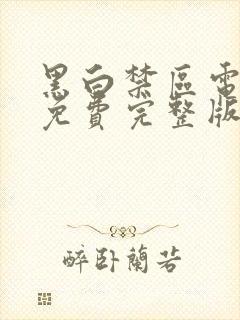 黑白禁區電
免費完整版
醉卧蘭若